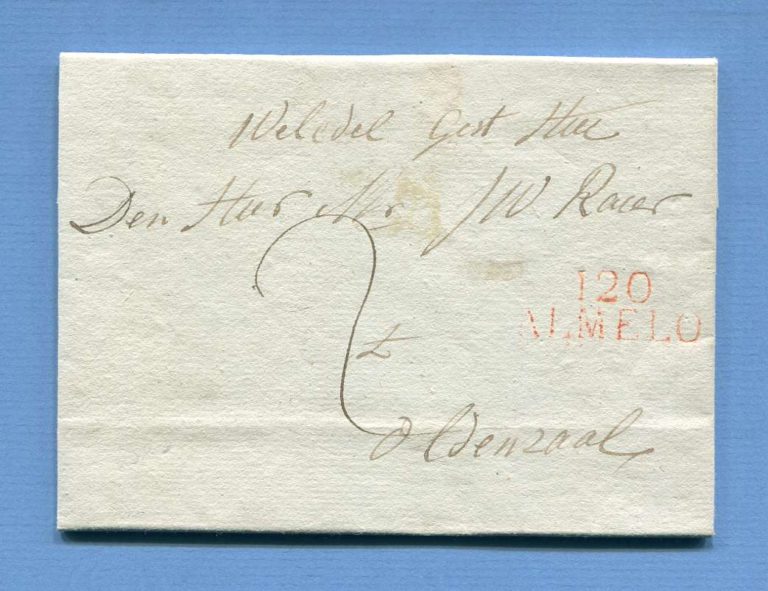 Weledel Gest Heer
Den Heer Mr JW Racer
120
ALMELO
2
t
Oldenzaal